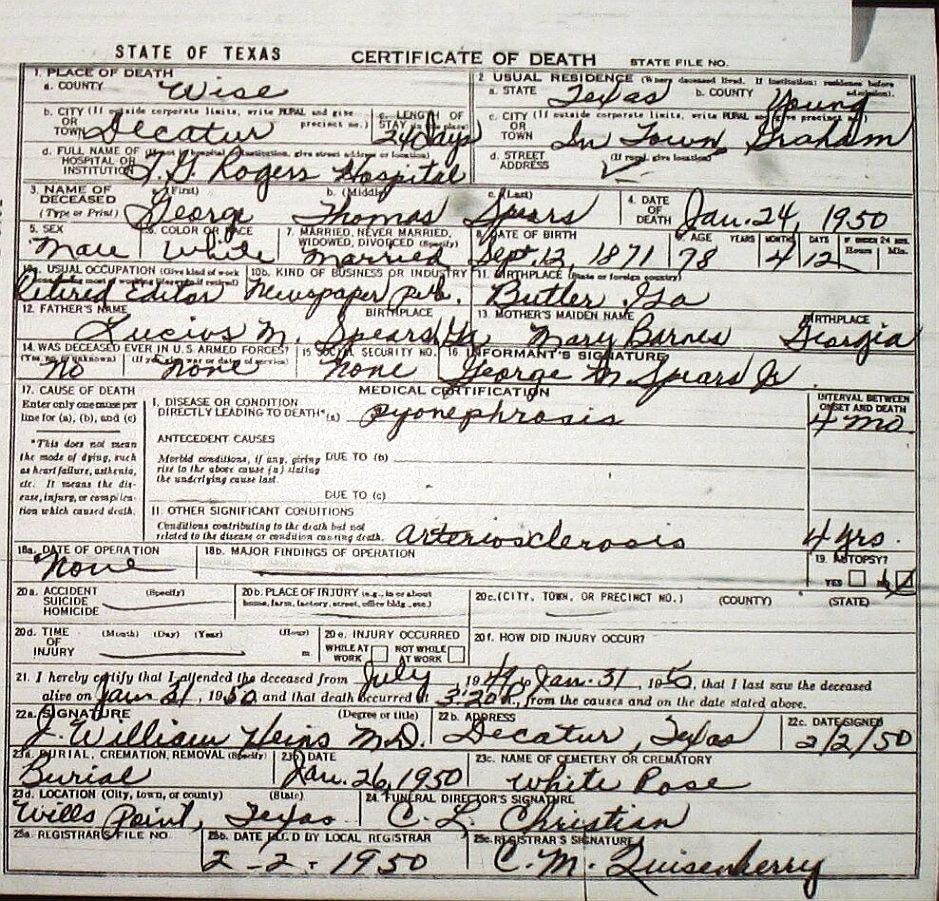 STATE OF TEXAS CERTIFICATE OF DEATH STATE FILE NO.
1. PLACE OF DEATH
a. COUNTY Wise
2. USUAL RESIDENCE (Where deceased lived. If institution: residence before admission).
a. STATE Texas b. COUNTY Young
b. CITY (If outside corporate limits, write RURAL and give precinct no.) OR TOWN Decatur
c. LENGTH OF STAY (in this place) 24 days
c. CITY (If outside corporate limits, write RURAL and give precinct no.) OR TOWN In Town Graham
d. FULL NAME OF HOSPITAL OR INSTITUTION (If not in hospital or institution, give street address or location) Rogers Hospital
d. STREET ADDRESS (If rural, give location)
3. NAME OF DECEASED (Type or Print) a. (First) George b. (Middle) Thomas c. (Last) Spears
4. DATE OF DEATH Jan. 24, 1950
5. SEX Male
6. COLOR OR RACE White
7. MARRIED, NEVER MARRIED, WIDOWED, DIVORCED (Specify) Married
8. DATE OF BIRTH Sept. 12 1871
9. AGE YEARS 78 MONTHS 4 DAYS 12 IF UNDER 24 HRS. Hours Min.
10a. USUAL OCCUPATION (Give kind of work done during most of working life, even if retired) Retired Editor
10b. KIND OF BUSINESS OR INDUSTRY Newspaper pub.
11. BIRTHPLACE (State or foreign country) Butler Ga
12. FATHER'S NAME Lucius M. Spears BIRTHPLACE Ga
13. MOTHER'S MAIDEN NAME Mary Barnes BIRTHPLACE Georgia
14. WAS DECEASED EVER IN U.S. ARMED FORCES? (Yes, no, or unknown) No (If yes, give war or dates of service) none
15. SOCIAL SECURITY NO. None
16. INFORMANT'S SIGNATURE George M Spears Jr.
17. CAUSE OF DEATH
Enter only one cause per line for (a), (b), and (c)
MEDICAL CERTIFICATION
INTERVAL BETWEEN ONSET AND DEATH
I. DISEASE OR CONDITION DIRECTLY LEADING TO DEATH* (a) pyonephrosis 4 mo.
*This does not mean the mode of dying, such as heart failure, asthenia, etc. It means the disease, injury, or complication which caused death.
ANTECEDENT CAUSES
Morbid conditions, if any, giving rise to the above cause (a) stating the underlying cause last.
DUE TO (b)
DUE TO (c)
II. OTHER SIGNIFICANT CONDITIONS
Conditions contributing to the death but not related to the disease or condition causing death. Arteriosclerosis 4 yrs.
18a. DATE OF OPERATION None
18b. MAJOR FINDINGS OF OPERATION
19. AUTOPSY?
YES NO
20a. ACCIDENT SUICIDE HOMICIDE (Specify)
20b. PLACE OF INJURY (e.g., in or about home, farm, factory, street, office bldg., etc.)
20c. (CITY, TOWN, OR PRECINCT NO.) (COUNTY) (STATE)
20d. TIME OF INJURY (Month) (Day) (Year) (Hour) m
20e. INJURY OCCURRED WHILE AT WORK NOT WHILE AT WORK
20f. HOW DID INJURY OCCUR?
21. I hereby certify that I attended the deceased from July, 1949, to Jan. 31, 1950, that I last saw the deceased
alive on Jan 31, 1950 and that death occurred at 3:20 P., from the causes and on the date stated above.
22a. SIGNATURE (Degree or title) J. William Heins M.D.
22b. ADDRESS Decatur, Texas
22c. DATE SIGNED 2/2/50
23a. BURIAL, CREMATION, REMOVAL (Specify) Burial
23b. DATE Jan. 26, 1950
23c. NAME OF CEMETERY OR CREMATORY White Rose
23d. LOCATION (City, town, or county) (State) Wills Point, Texas
24. FUNERAL DIRECTOR'S SIGNATURE C. L. Christian
25a. REGISTRAR'S FILE NO.
25b. DATE REC'D BY LOCAL REGISTRAR 2-2-1950
25c. REGISTRAR'S SIGNATURE C. M. Quisenberry